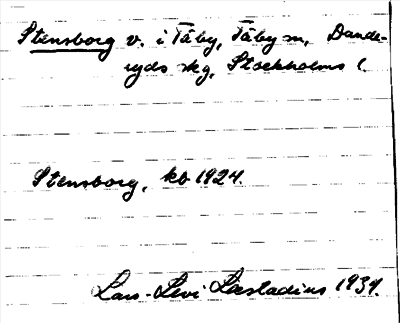 Stensborg v. i Täby, Täby sn, Dande-
ryds skg, Stockholms l.
Stensborg, kb 1924.
Lars-Levi Læstadius 1939.